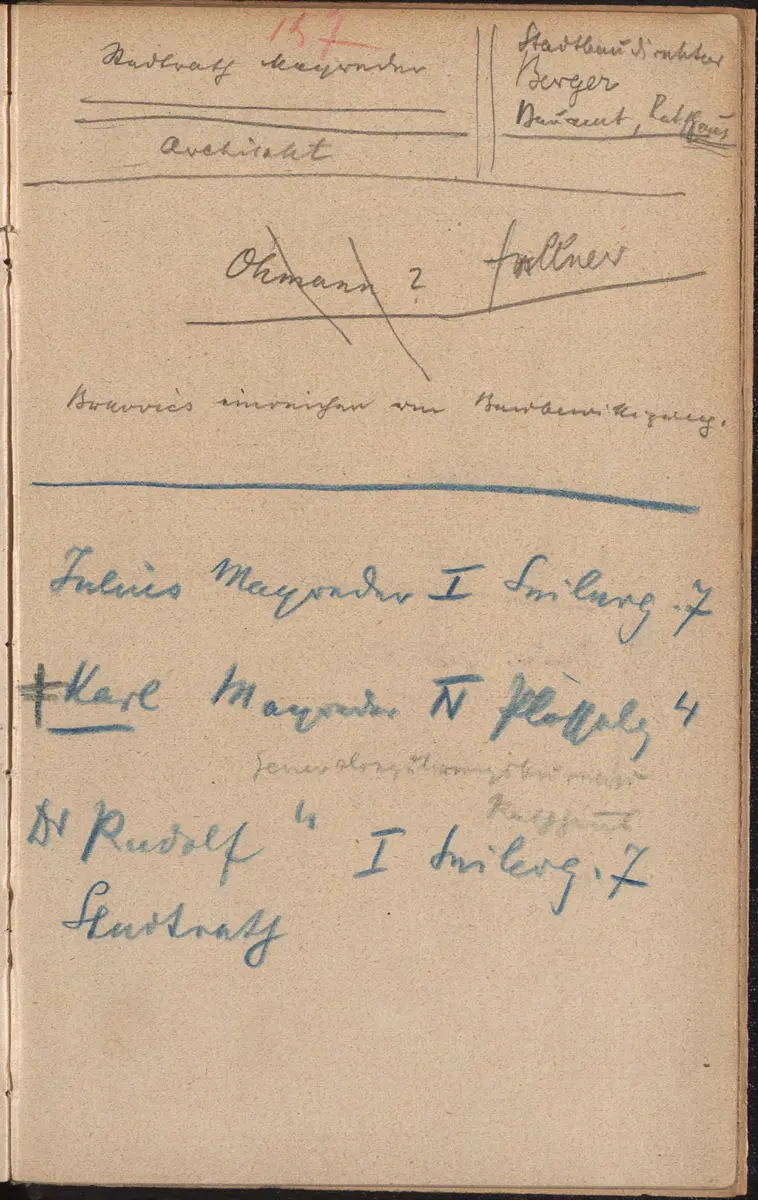 157
Stadtrath Mayreder
Architekt
Stadtbaudirektor
Berger
Bauamt, Rathhaus
Ohmann ? Fellner
einreichen um Baubewilligung.
Julius Mayreder I Seilerg. 7
Karl Mayreder IV Plösslg 4
Generalregulierungsbureau
Rathhaus
Dr Rudolf " I Seilerg. 7
Stadtrath